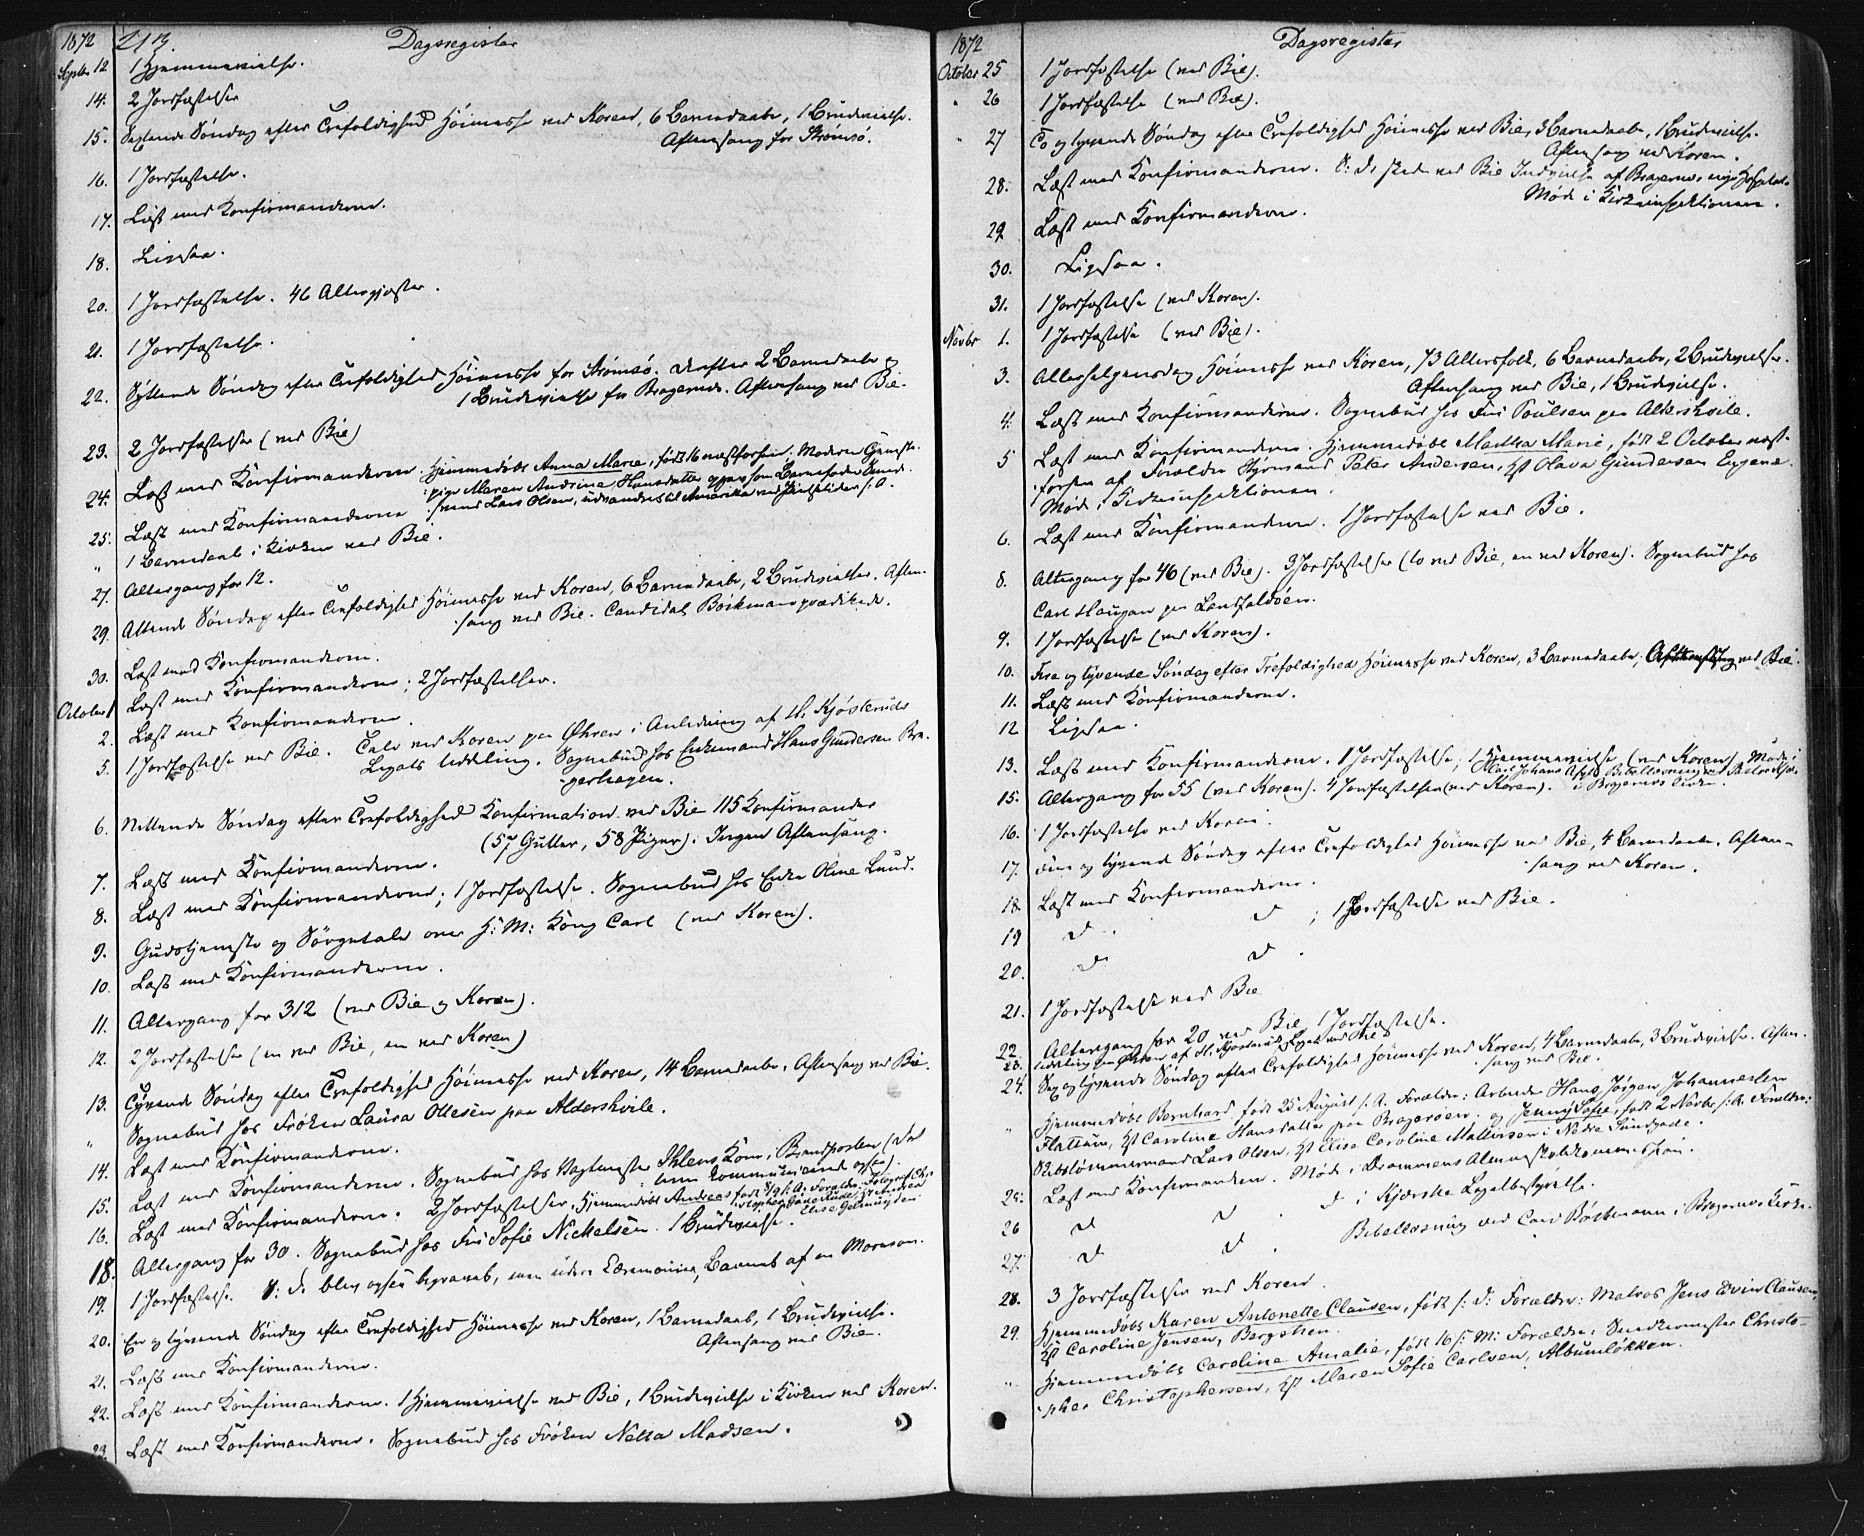 1872 213. Dagsregister
Septbr 12 1 Hjemmevielse.
14. 2 Jordfæstelser
15. Sextende Søndag efter Trefoldighed Høimesse ved Koren, 6 Barnedaabe, 1 Brudevielse.
Aftensang for Strømsø.
16. 1 Jordfæstelse.
17. Læst med Konfirmanderne.
18. Ligesaa.
20. 1 Jordfæstelse. 46 Altergjæster.
21. 1 Jordfæstelse.
22. Syttende Søndag efter Trefoldighed Høimesse for Strømsø. Derefter 2 Barnedaabe og
1 Brudevielse for Bragernes. Aftensang ved Bie.
23. 2 Jordfæstelser (ved Bie)
24. Læst med Konfirmanderne. Hjemmedøbt Anna Marie, født 16 næstforhen. Moderen Tjeneste-
pige Maren Andrine Hansdatter opgav som Barnefader Smed-
25. Læst med Konfirmanderne svend Lars Olsen, udvandret til Amerika ved Pintsetider s. A.
" 1 Barnedaab i Kirken ved Bie.
27. Altergang for 12.
29. Attende Søndag efter Trefoldighed Høimesse ved Koren, 6 Barnedaabe, 2 Brudevielser. Aften-
sang ved Bie. Candidat Børkmann prædikede.
30. Læst med Konfirmanderne.
October 1 Læst med Konfirmanderne; 2 Jordfæstelser.
2. Læst med Konfirmanderne.
5. 1 Jordfæstelse ved Bie. Tale ved Koren paa Øhren i Anledning af H. Kjøsteruds
Legats Uddeling. Sognebud hos Enkemand Hans Gundersen Bra-
gerhagen.
6. Nittende Søndag efter Trefoldighed Konfirmation ved Bie 115 Konfirmander
(57 Gutter, 58 Piger). Ingen Aftensang.
7. Læst med Konfirmanderne.
8. Læst med Konfirmanderne; 1 Jordfæstelse. Sognebud hos Enke Oline Lund.
9. Gudstjeneste og Sørgetale over H: M: Kong Carl (ved Koren).
10. Læst med Konfirmanderne.
11. Altergang for 312 (ved Bie og Koren).
12. 2 Jordfæstelser (en ved Bie, en ved Koren)
13. Tyvende Søndag efter Trefoldighed Høimesse ved Koren, 14 Barnedaabe, Aftensang ved Bie.
" Sognebud hos Frøken Laura Ottesen paa Aldershvile.
14. Læst med Konfirmanderne.
15. Læst med Konfirmanderne. Sognebud hos Vagtmester Ihlens Kone, Brandposten (Datteren kommunicerede ogsaa).
16. Læst med Konfirmanderne. 2 Jordfæstelser. Hjemmedøbt Andreas født 8/9 s: A: Forældre: Fotograf
18. Altergang for 30. Sognebud hos Fru Sofie Nickelsen. 1 Brudevielse.
19. 1 Jordfæstelse. S: D. blev ogsaa begravet, men uden Ceremonier, Barnet af en Mormon.
20. En og tyvende Søndag efter Trefoldighed Høimesse ved Koren, 1 Barnedaab, 1 Brudevielse.
Aftensang ved Bie.
21. Læst med Konfirmanderne.
22. Læst med Konfirmanderne. 1 Hjemmevielse ved Bie, 1 Brudevielse i Kirken ved Koren.
23. Læst med Konfirmanderne. Sognebud hos Frøken Netta Madsen.
1872 Dagsregister
October 25 1 Jordfæstelse (ved Bie).
" 26 1 Jordfæstelse (ved Bie).
" 27 To og tyvende Søndag efter Trefoldighed Høimesse ved Bie, 3 Barnedaabe, 1 Brudevielse.
Aftensang ved Koren.
28. Læst med Konfirmanderne. S: D: skede ved Bie Indvielse af Bragernes nye Hospital.
Møde i Kirkeinspektionen.
29. Læst med Konfirmanderne.
30. Ligesaa.
31. 1 Jordfæstelse (ved Koren).
Novbr 1. 1 Jordfæstelse (ved Bie).
3. Allerhelgensdag Høimesse ved Koren, 73 Altersfolk, 6 Barnedaabe, 2 Brudevielser.
Aftensang ved Bie, 1 Brudevielse.
4. Læst med Konfirmanderne. Sognebud hos Fru Poulsen paa Aldershvile.
5 Læst med Konfirmanderne. Hjemmedøbt Martha Marie, født 2 October næst-
forhen af Forældre Styrmand Peter Andersen, Hst Olava Gundersen Engene.
Møde i Kirkeinspektionen.
6. Læst med Konfirmanderne. 1 Jordfæstelse ved Bie.
8. Altergang for 46 (ved Bie). 3 Jordfæstelser (to ved Bie, en ved Koren). Sognebud hos
Carl Haugan paa Landfaldøen.
9. 1 Jordfæstelse (ved Koren).
10. Fire og tyvende Søndag efter Trefoldighed Høimesse ved Koren, 3 Barnedaabe, Aftensang ved Bie.
11. Læst med Konfirmanderne.
12 Ligesaa.
13. Læst med Konfirmanderne. 1 Jordfæstelse, 1 Hjemmevielse (ved Koren) Møde i
Carl Johans Asyl. Bibellæsning
15. Altergang for 55 (ved Koren). 4 Jordfæstelser (ved Koren). i Bragernes Kirke.
16. 1 Jordfæstelse ved Koren.
17. Fem og tyvende Søndag efter Trefoldighed Høimesse ved Bie, 4 Barnedaabe. Aften-
sang ved Koren.
18. Læst med Konfirmanderne.
19 D D ; 1 Jordfæstelse ved Bie.
20. D D .
21. 1 Jordfæstelse ved Bie
22. Altergang for 20 ved Bie 1 Jordfæstelse.
23. Uddeling paa Øhren af H. Kjøsteruds Legat ved Bie
24. Sex og tyvende Søndag efter Trefoldighed Høimesse ved Koren, 4 Barnedaabe, 3 Brudevielser. Aften-
sang ved Bie.
" Hjemmedøbt Bernhard født 25 August s. A. Forældre: Arbeider Hans Jørgen Johannesen
Flattum, Hst Caroline Hansdatter paa Bragerøen. og Jenny Sofie, født 2 Novbr s: A. Forældre:
Skibstømmermand Lars Olsen, Hst Elise Caroline Mathisen i Nedre Sundgade.
25. Læst med Konfirmanderne. Møde i Drammens Almueskolekommission.
26 D D . D i Kjærske Legatbestyrelse.
27. D D . Bibellæsning ved Cand Børkmann i Bragernes Kirke.
28. 3 Jordfæstelser ved Koren.
29. Hjemmedøbt Karen Antonette Clausen, født s: D: Forældre: Matros Jens Edvin Clausen,
Hst Caroline Jensen, Bergstien.
" Hjemmedøbt Caroline Amalie, født 16 s: M: Forældre: Snedkermester Christo-
pher Christophersen, Hst Maren Sofie Carlsen, Albumløkken.